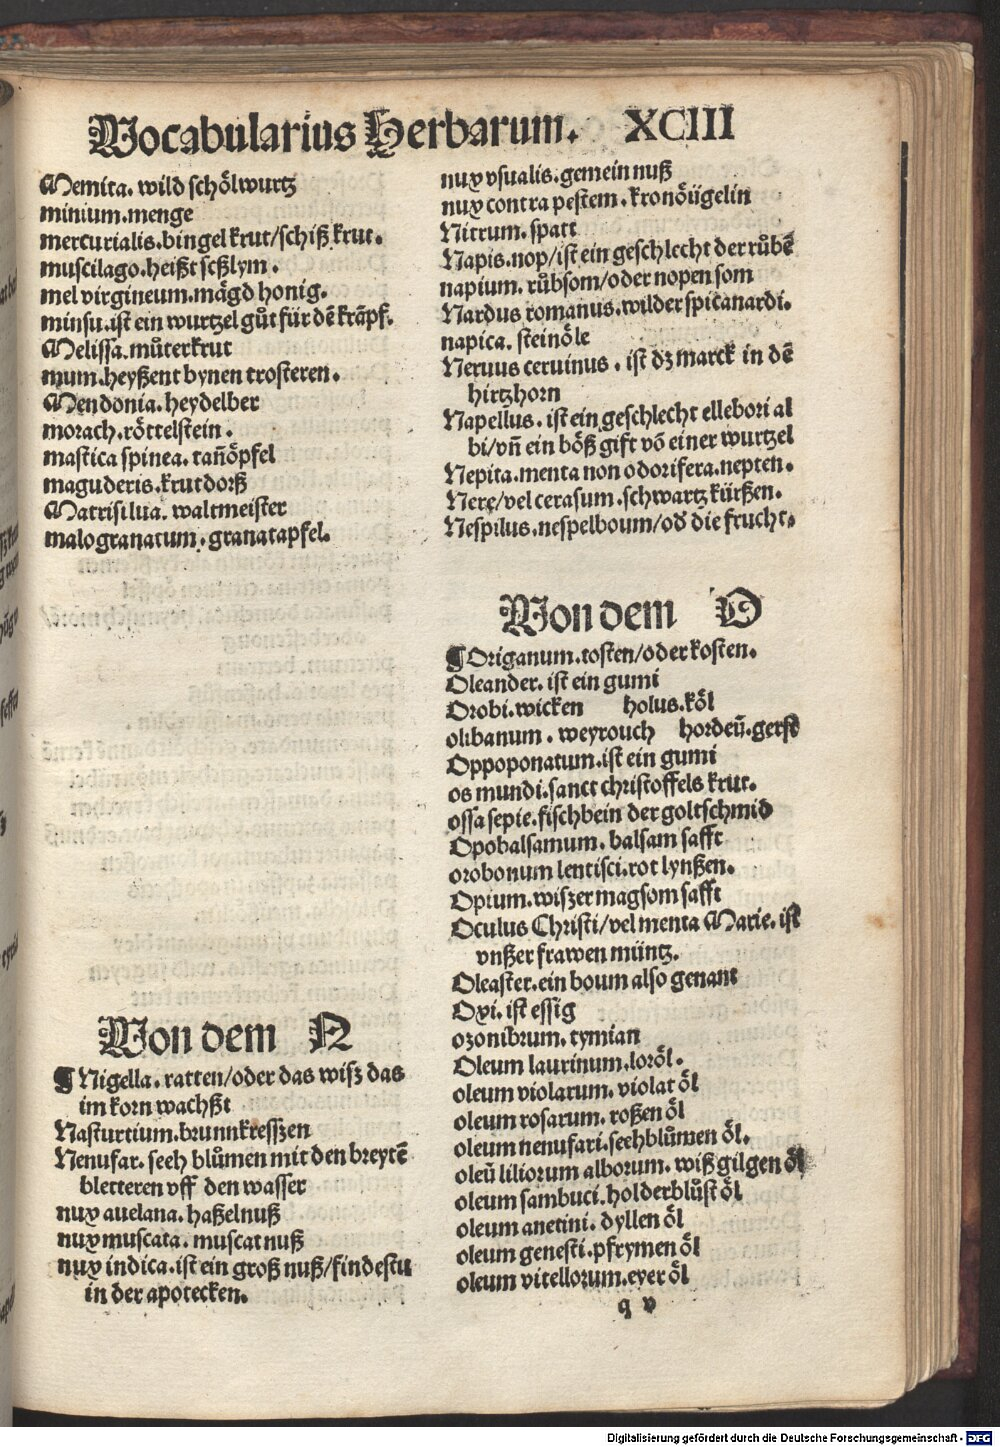 Vocabularius Herbarum. XCIII
Memita. wild schölwurtz
minium. menge
mercurialis. bingel krut/schiß krut.
muscilago. heißt seßlym.
mel virgineum. mägd honig.
minsu. ist ein wurtzel gůt für dē krāpf.
Melissa. můterkrut
mum. heyßent bynen trosteren.
Mendonia. heydelber
morach. röttelstein.
mastica spinea. tañöpfel
maguderis. krutdorß
Matrisilua. waltmeister
malogranatum. granatapfel.
Von dem N
¶ Nigella. ratten/oder das wisz das
im korn wachßt
Nasturtium. brunnkresszen
Nenufar. seeh blůmen mit den breytē
bletteren vff den wasser
nux auelana. haßelnuß
nux muscata. muscat nuß
nux indica. ist ein groß nuß/findestu
in der apotecken.
nux vsualis. gemein nuß
nux contra pestem. kronöügelin
Nitrum. spatt
Napis. nop/ist ein geschlecht der růbē
napium. růbsom/oder nopen som
Nardus romanus. wilder spicanardi.
napica. steinöle
Neruus ceruinus. ist dz marck in dē
hirtzhorn
Napellus. ist ein geschlecht ellebori al
bi/vñ ein böß gift vō einer wurtzel
Nepita. menta non odorifera. nepten.
Nere/vel cerasum. schwartz kürßen.
Nespilus. nespelboum/od̄ die frucht.
Von dem O
¶ Origanum. tosten/oder kosten.
Oleander. ist ein gumi
Orobi. wicken holus. köl
olibanum. weyrouch hordeū. gerst
Oppoponatum. ist ein gumi
os mundi. sanct christoffels krut.
ossa sepie. fischbein der goltschmid
Opobalsamum. balsam safft
orobonum lentisci. rot lynßen.
Opium. wiszer magsom safft
Oculus Christi/vel menta Marie. ist
vnßer frawen müntz.
Oleaster. ein boum also genant
Oxi. ist essig
ozonibrum. tymian
Oleum laurinum. loröl.
oleum violarum. violat öl
oleum rosarum. roßen öl
oleum nenufari. seehblůmen öl.
oleū liliorum alborum. wiß gilgen öl
oleum sambuci. holderblůst öl
oleum anetini. dyllen öl
oleum genesti. pfrymen öl
oleum vitellorum. eyer öl
q v
Digitalisierung gefördert durch die Deutsche Forschungsgemeinschaft - DFG